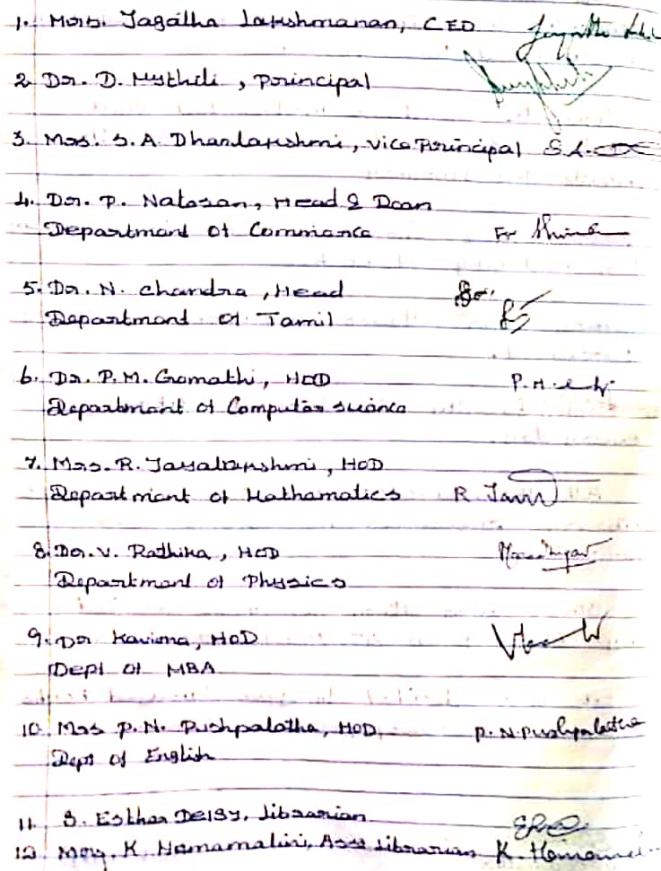 1. Mrs. Jagatha Lakshmanan, CEO
2. Dr. D. Mythili, Principal
3. Mrs. S.A. Dhanlakshmi, Vice Principal S.A.
4. Dr. P. Natesan, Head & Dean
Department of Commerce For
5. Dr. N. Chandra, Head
Department of Tamil
6. Dr. P.M. Gomathi, HOD P.M.
Department of Computer Science
7. Mrs. R. Jayalakshmi, HOD
Department of Mathematics R
8. Dr. V. Rathika, HOD
Department of Physics
9. Dr Kavima, HOD
Dept of MBA
10. Mrs P. N. Pushpalatha, HOD P. N. Pushpalatha
Dept of English
11. S. Esther Deisy, Librarian
12. K. Hemamalini, Asst Librarian K.